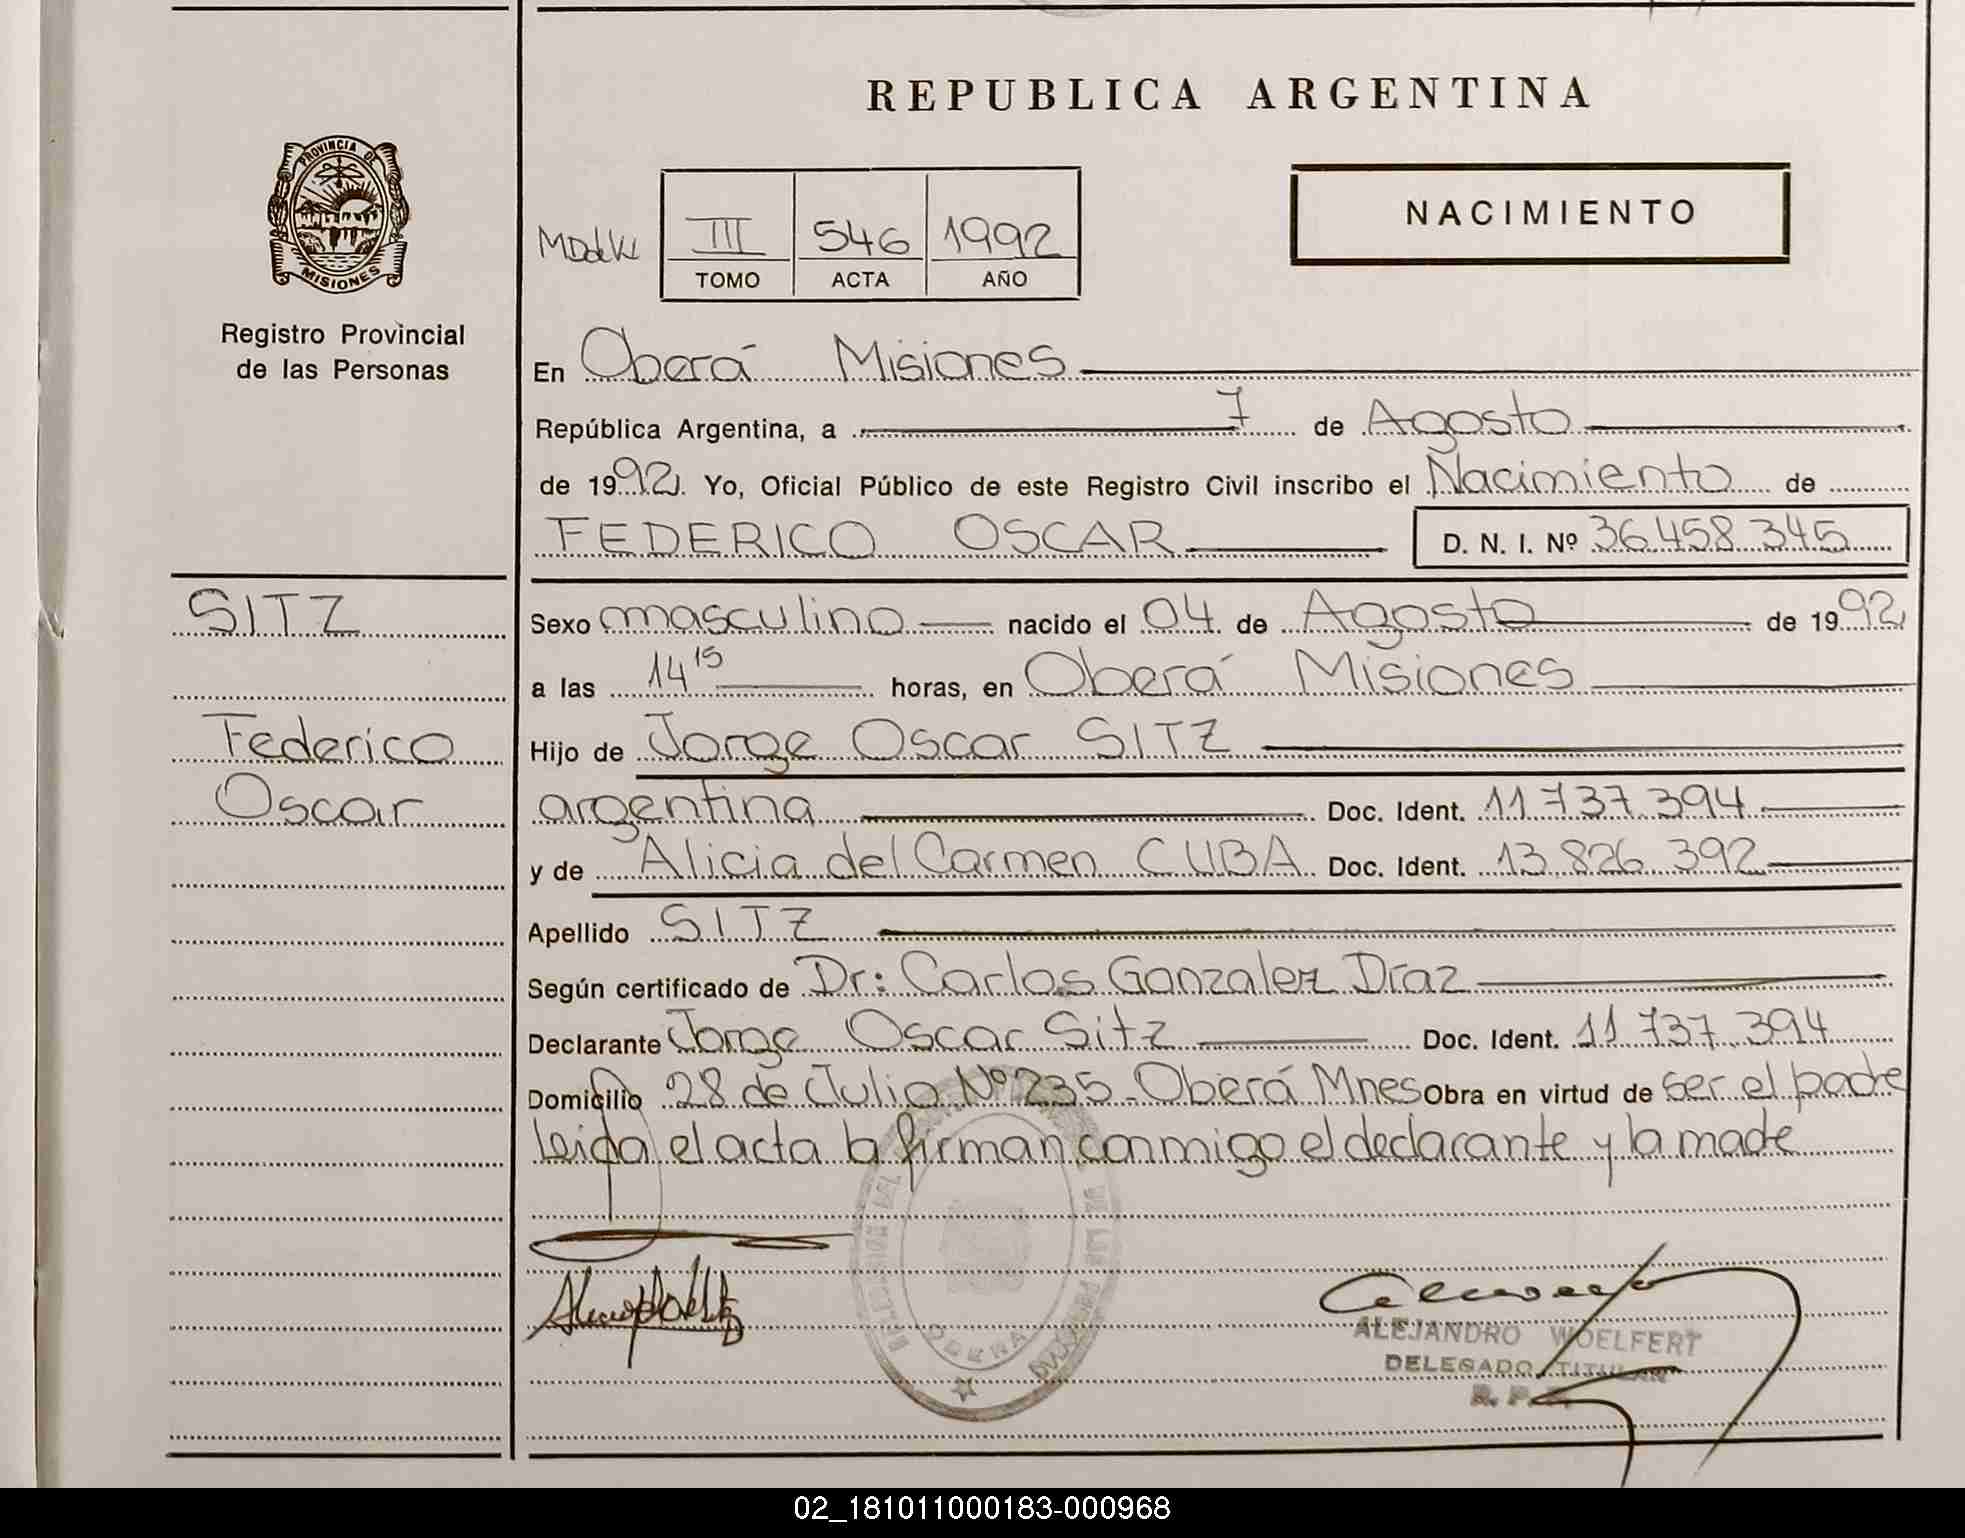 REPUBLICA ARGENTINA
PROVINCIA DE
MISIONES
Registro Provincial
de las Personas
III 546 1992
TOMO ACTA AÑO
NACIMIENTO
En Oberá Misiones
República Argentina, a 7 de Agosto
de 1992. Yo, Oficial Público de este Registro Civil inscribo el Nacimiento de
FEDERICO OSCAR D. N. I. Nº 36.458.345
SITZ
Federico
Oscar
Sexo masculino nacido el 04 de Agosto de 1992
a las 14 15 horas, en Oberá Misiones
Hijo de Jorge Oscar SITZ
argentina Doc. Ident. 11.737.394
y de Alicia del Carmen CUBA Doc. Ident. 13.826.392
Apellido SITZ
Según certificado de Dr: Carlos Gonzalez Díaz
Declarante Jorge Oscar Sitz Doc. Ident. 11.737.394
Domicilio 28 de Julio Nº 235 - Oberá Mnes Obra en virtud de ser el padre
Leida el acta la firman conmigo el declarante y la madre
ALEJANDRO WOELFERT
DELEGADO TITULAR
02_181011000183-000968